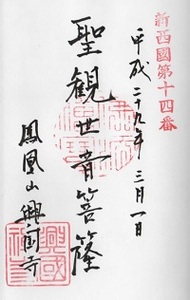 新西國第十四番
平成二十九年 三月一日
聖観世音菩薩
鳳凰山 興国寺